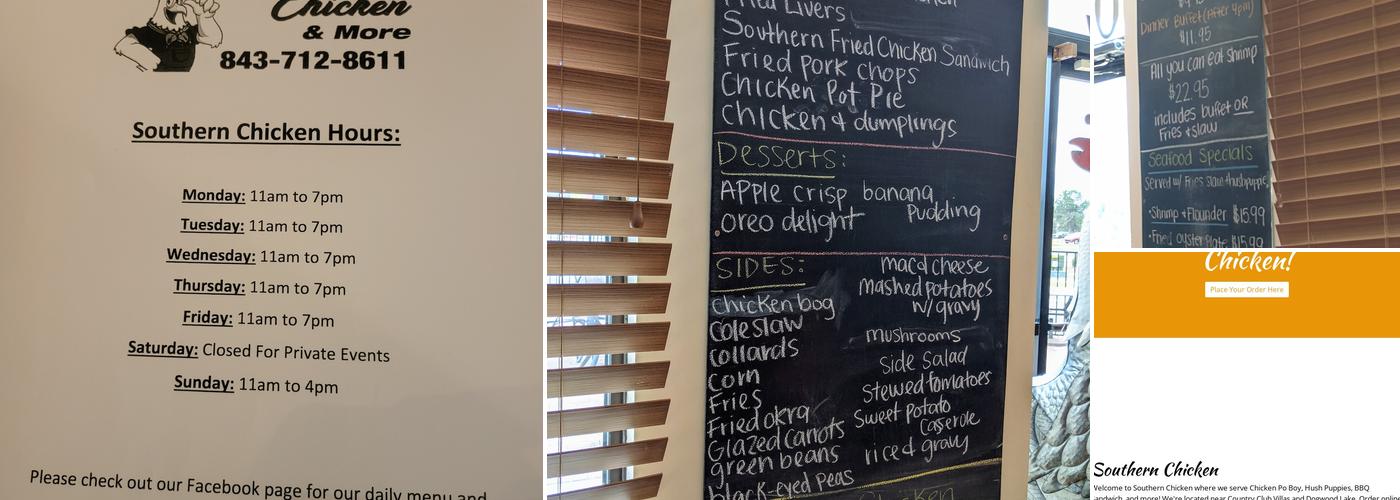 Chicken
& More
843-712-8611
Southern Chicken Hours:
Monday: 11am to 7pm
Tuesday: 11am to 7pm
Wednesday: 11am to 7pm
Thursday: 11am to 7pm
Friday: 11am to 7pm
Saturday: Closed For Private Events
Sunday: 11am to 4pm
Please check out our Facebook page for our daily menu and
Fried Livers
Southern Fried Chicken Sandwich
Fried pork chops
Chicken Pot Pie
Chicken & dumplings
Desserts:
APPle crisp banana
oreo delight Pudding
SIDES:
chicken bog
Coleslaw
collards
Corn
Fries
Fried okra
Glazed carrots
green beans
black-eyed peas
mac'd cheese
mashed potatoes
w/ gravy
mushrooms
side salad
Stewed tomatoes
Sweet Potato
Caserole
rice d gravy
Chicken
Dinner Buffet (After 4pm)
$11.95
All you can eat shrimp
$22.95
includes buffet OR
Fries + slaw
Seafood Specials
Served w/ Fries Slaw + hushpuppie
• Shrimp + Flounder $15.99
• Fried oyster Plate $15.99
Chicken!
Place Your Order Here
Southern Chicken
Welcome to Southern Chicken where we serve Chicken Po Boy, Hush Puppies, BBQ
andwich, and more! We're located near Country Club Villas and Dogwood Lake. Order online